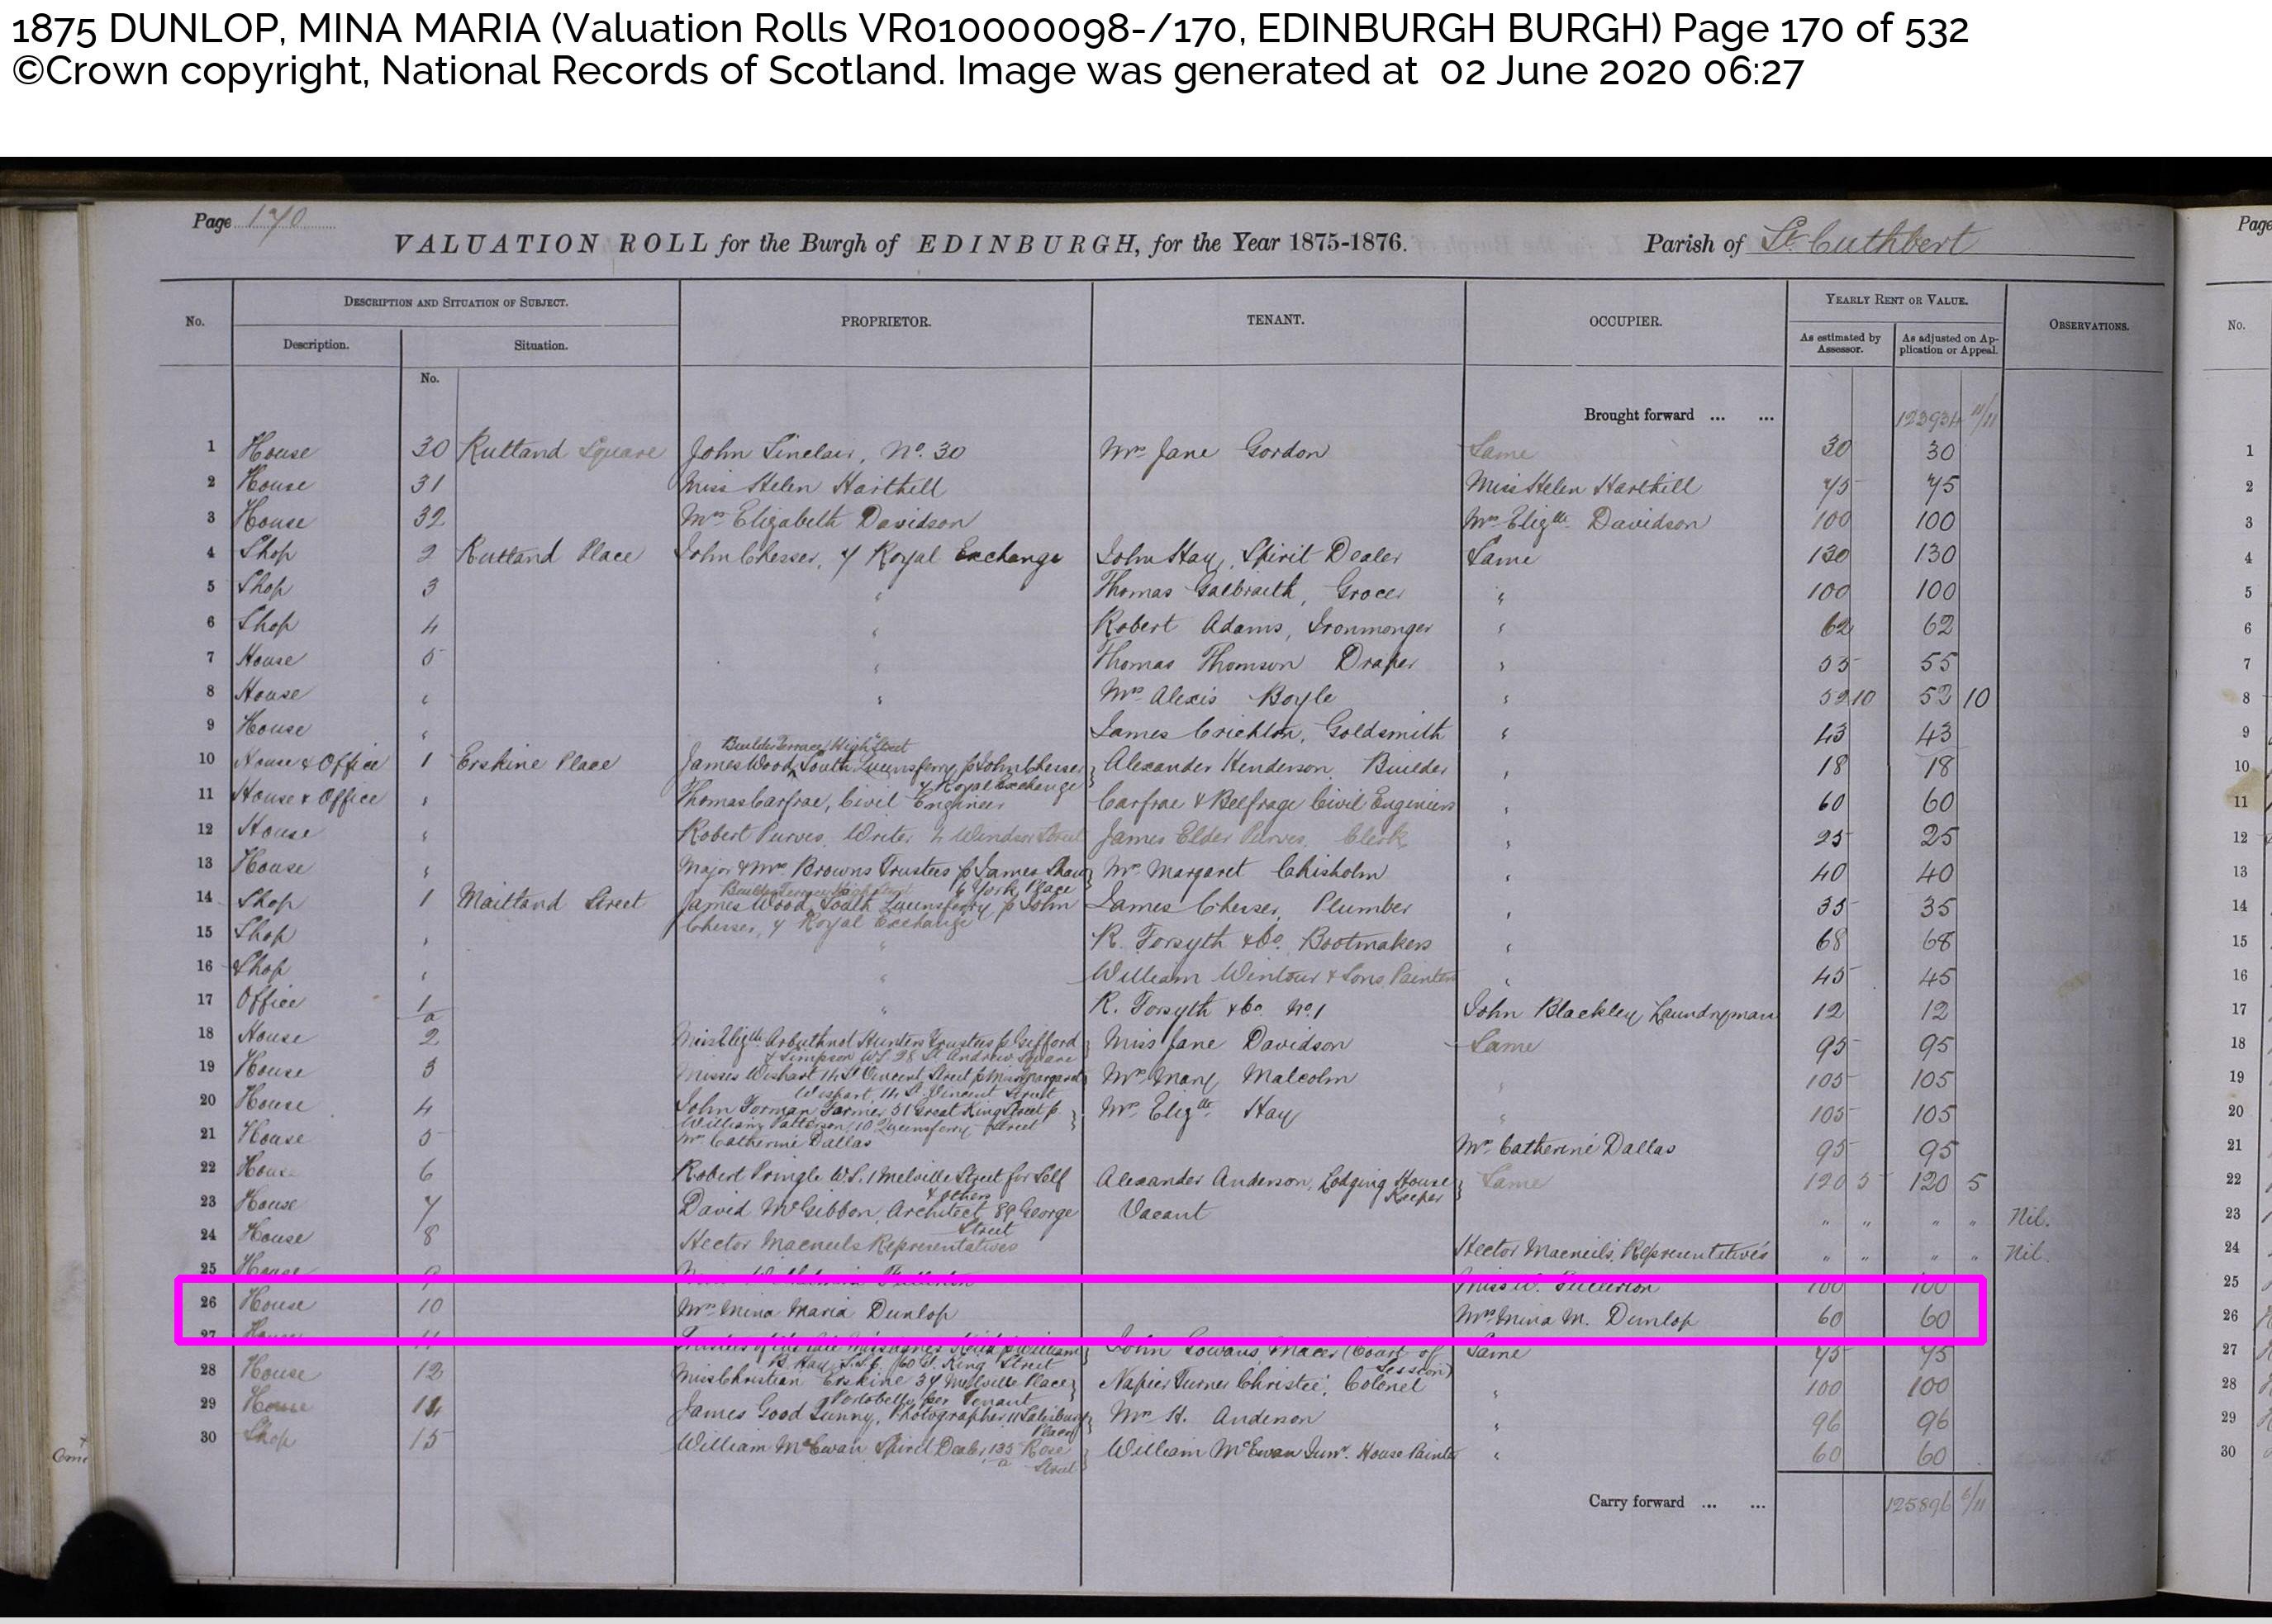 1875 DUNLOP, MINA MARIA (Valuation Rolls VR010000098-/170, EDINBURGH BURGH) Page 170 of 532
©Crown copyright, National Records of Scotland. Image was generated at 02 June 2020 06:27
Page 170
VALUATION ROLL for the Burgh of EDINBURGH, for the Year 1875-1876. Parish of St. Cuthbert
Page
No. DESCRIPTION AND SITUATION OF SUBJECT. PROPRIETOR. TENANT. OCCUPIER. YEARLY RENT OR VALUE. OBSERVATIONS. No.
Description. Situation. As estimated by Assessor. As adjusted on Application or Appeal.
No.
Brought forward ... ... 123934 11/11
1 House 30 Rutland Square John Sinclair, No. 30 Mrs Jane Gordon Same 30 30 1
2 House 31 Miss Helen Harthill Miss Helen Harthill 75 75 2
3 House 32 Mrs Elizabeth Davidson Mrs Elizth Davidson 100 100 3
4 Shop 2 Rutland Place John Chesser, 7 Royal Exchange John Hay, Spirit Dealer Same 130 130 4
5 Shop 3 " Thomas Galbraith, Grocer " 100 100 5
6 Shop 4 " Robert Adams, Ironmonger " 62 62 6
7 House 5 " Thomas Thomson Draper " 55 55 7
8 House " " Mrs Alexis Boyle " 52 10 52 10 8
9 House " James Crichton, Goldsmith " 43 43 9
10 House & Office 1 Erskine Place James Wood, Builder Terrace, High Street South Queensferry p John Chesser 7 Royal Exchange Alexander Henderson Builder " 18 18 10
11 House & Office " Thomas Carfrae, Civil Engineer Carfrae & Belfrage Civil Engineers " 60 60 11
12 House " Robert Purves, Writer, 2 Windsor Street James Elder Purves, Clerk " 25 25 12
13 House " Major & Mrs Browns Trustees p James Shaw 6 York Place Mrs Margaret Chisholm " 40 40 13
14 Shop 1 Maitland Street James Wood, Builder Terrace High Street South Queensferry p John Chesser, 7 Royal Exchange James Chesser, Plumber " 35 35 14
15 Shop " " R. Forsyth & Co. Bootmakers " 68 68 15
16 Shop " " William Wintour & Sons, Painters " 45 45 16
17 Office 1/a " R. Forsyth & Co. No. 1 John Blackley, Laundryman 12 12 17
18 House 2 Miss Elizth Arbuthnot Hunters Trustees p Gifford & Simpson W.S. 28 St. Andrew Square Miss Jane Davidson Same 95 95 18
19 House 3 Misses Wishart 14 St Vincent Street p Miss Margaret Wishart, 14 St. Vincent Street Mrs Mary Malcolm " 105 105 19
20 House 4 John Forman Farmer, 51 Great King Street p William Patterson, 10 Queensferry Street Mrs Elizth Hay " 105 105 20
21 House 5 Mrs Catherine Dallas Mrs Catherine Dallas 95 95 21
22 House 6 Robert Pringle W.S. 1 Melville Street for Self & others Alexander Anderson, Lodging House Keeper Same 120 5 120 5 22
23 House 7 David McGibbon, Architect 89 George Street Vacant " " " " Nil. 23
24 House 8 Hector Macneils Representatives Hector Macneils, Representatives " " " " Nil. 24
25 House 9 Miss Wilhelmina Fullerton Miss W. Fullerton 100 100 25
26 House 10 Mrs Mina Maria Dunlop Mrs Mina M. Dunlop 60 60 26
27 House 11 Trustees of the late Miss Agnes p William B. Hay, S.S.C. Gt. King Street John Cowans Macer (Court of Session) Same 75 75 27
28 House 12 Miss Christian Erskine 34 Melville Place, Portobello, per Tenant Napier Turner Christie, Colonel " 100 100 28
29 House 14 James Good Tunny, Photographer 11 Salisbury Place Mrs H. Anderson " 96 96 29
30 Shop 15 William McEwan, Spirit Dealer, 135/a Rose Street William McEwan Junr. House Painter " 60 60 30
Carry forward ... ... 125896 6/11